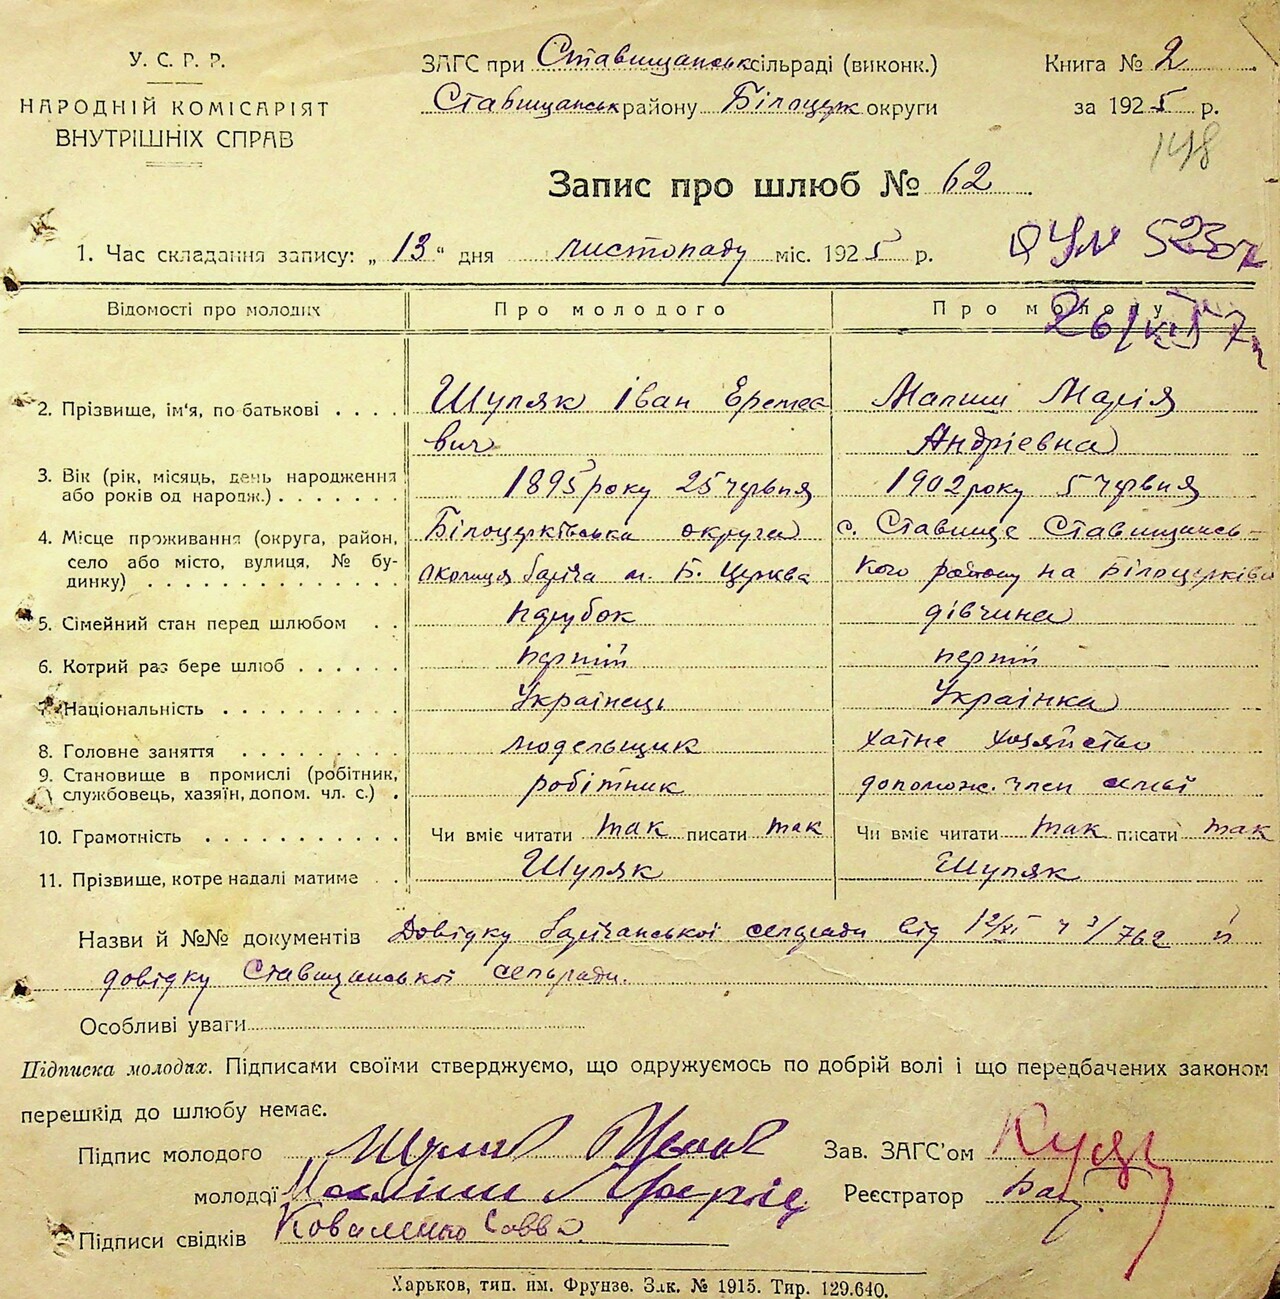 У. С. Р. Р.
НАРОДНІЙ КОМІСАРІЯТ
ВНУТРІШНІХ СПРАВ
ЗАГС при Ставищанськ сільраді (виконк.)
Ставищанськ району Білоцерк округи
Книга № 2
за 1925 р.
148
Запис про шлюб № 62
1. Час складання запису: „13“ дня листопаду міс. 1925 р.
Відомості про молодих
Про молодого
Про молоду
2. Прізвище, ім‘я, по-батькові
Шупляк Іван
вич
Марія
Андрієвна
3. Вік (рік, місяць, день народження
або років од народж.)
1895 року 25 червня
1902 року 5 червня
4. Місце проживання (округа, район,
село або місто, вулиця, № бу-
динку)
Білоцерківська округа
околиця м. Б. Церква
с. Ставище Ставищансь-
кого району на Білоцерківщ
5. Сімейний стан перед шлюбом
парубок
дівчина
6. Котрий раз бере шлюб
перший
перший
7. Національність
Українець
Українка
8. Головне заняття
модельщик
хатне хозяйство
9. Становище в промислі (робітник,
службовець, хазяїн, допом. чл. с.)
робітник
допомож. член сем'ї
10. Грамотність
Чи вміє читати так писати так
Чи вміє читати так писати так
11. Прізвище, котре надалі матиме
Шупляк
Шупляк
Назви й №№ документів Довідку сельради від 12/XI ч 3/762 й
довідку Ставищанської сельради.
Особливі уваги
Підписка молодих. Підписами своїми стверджуємо, що одружуємось по добрій волі і що передбачених законом
перешкід до шлюбу немає.
Підпис молодого
Зав. ЗАГС’ом
молодої
Реєстратор
Підписи свідків Коваленко Савва
Харьков, тип. им. Фрунзе. Зак. № 1915. Тир. 129.640.